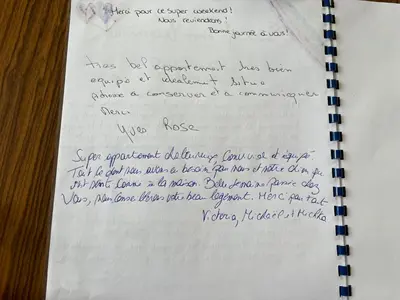 Merci pour ce super weekend!
Nous reviendrons!
Bonne journée à vous!
tres bel appartement tres bien
equipé et idealement situé
adresse a conserver et a communiquer
Merci
Yves Rose
Super appartement chaleureux, Convivial et équipé
Tout ce dont nous avons besoin par nous et notre
sont sentis comme à la maison. Belle semaine passée chez
Vous, nous votre beau logement. Merci pour tout
Victoria, Michaël et